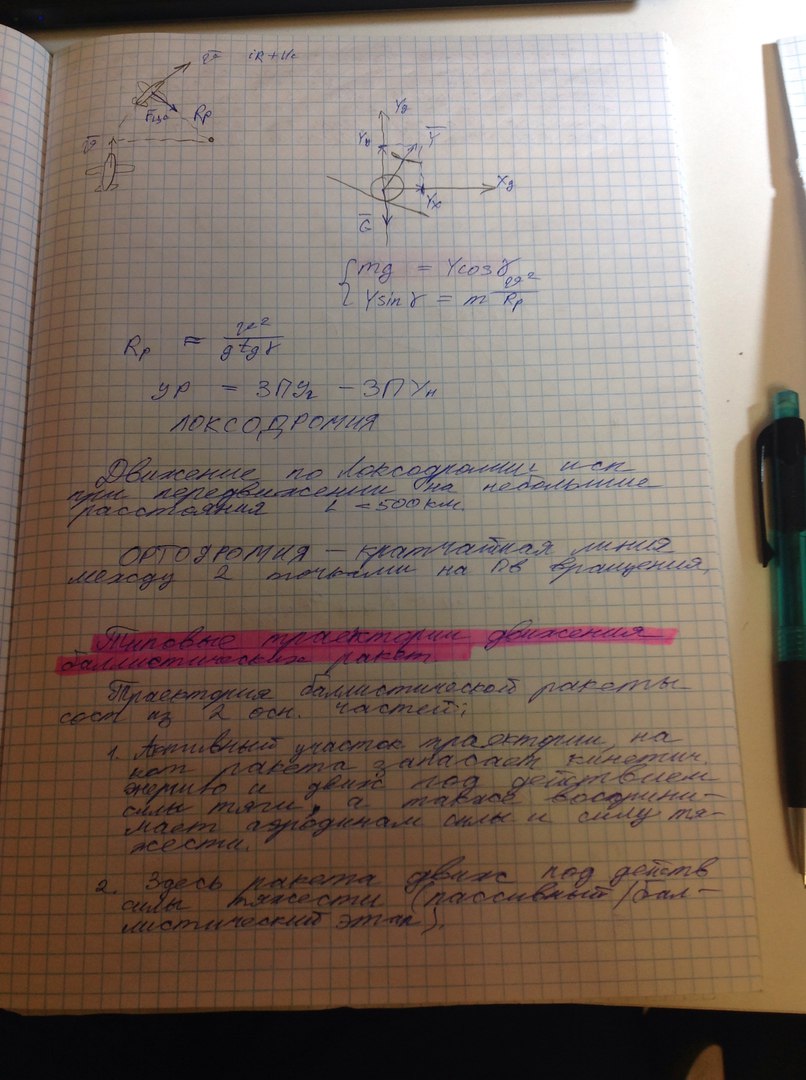 V̅
Rр
Fцб
V̅
Yg
Yy
Y̅
Xg
Yx
G̅
mg = Ycosγ
Ysinγ = m V²/Rр
Rр = V²/g tgγ
УР = ЗПУ₂ - ЗПУн
ЛОКСОДРОМИЯ
Движение по локсодромии исп
при передвижении на небольшие
расстояния L < 500 км.
ОРТОДРОМИЯ – кратчайшая линия
между 2 точками на пв вращения.
Типовые траектории движения
баллистических ракет.
Траектория баллистической ракеты
сост из 2 осн. частей:
1. Активный участок траектории, на
кот ракета запасает кинетич.
энергию и движ под действием
силы тяги, а также восприни-
мает аэродинам силы и силу тя-
жести.
2. Здесь ракета движ под действ
силы тяжести (пассивный/бал-
листический этап).